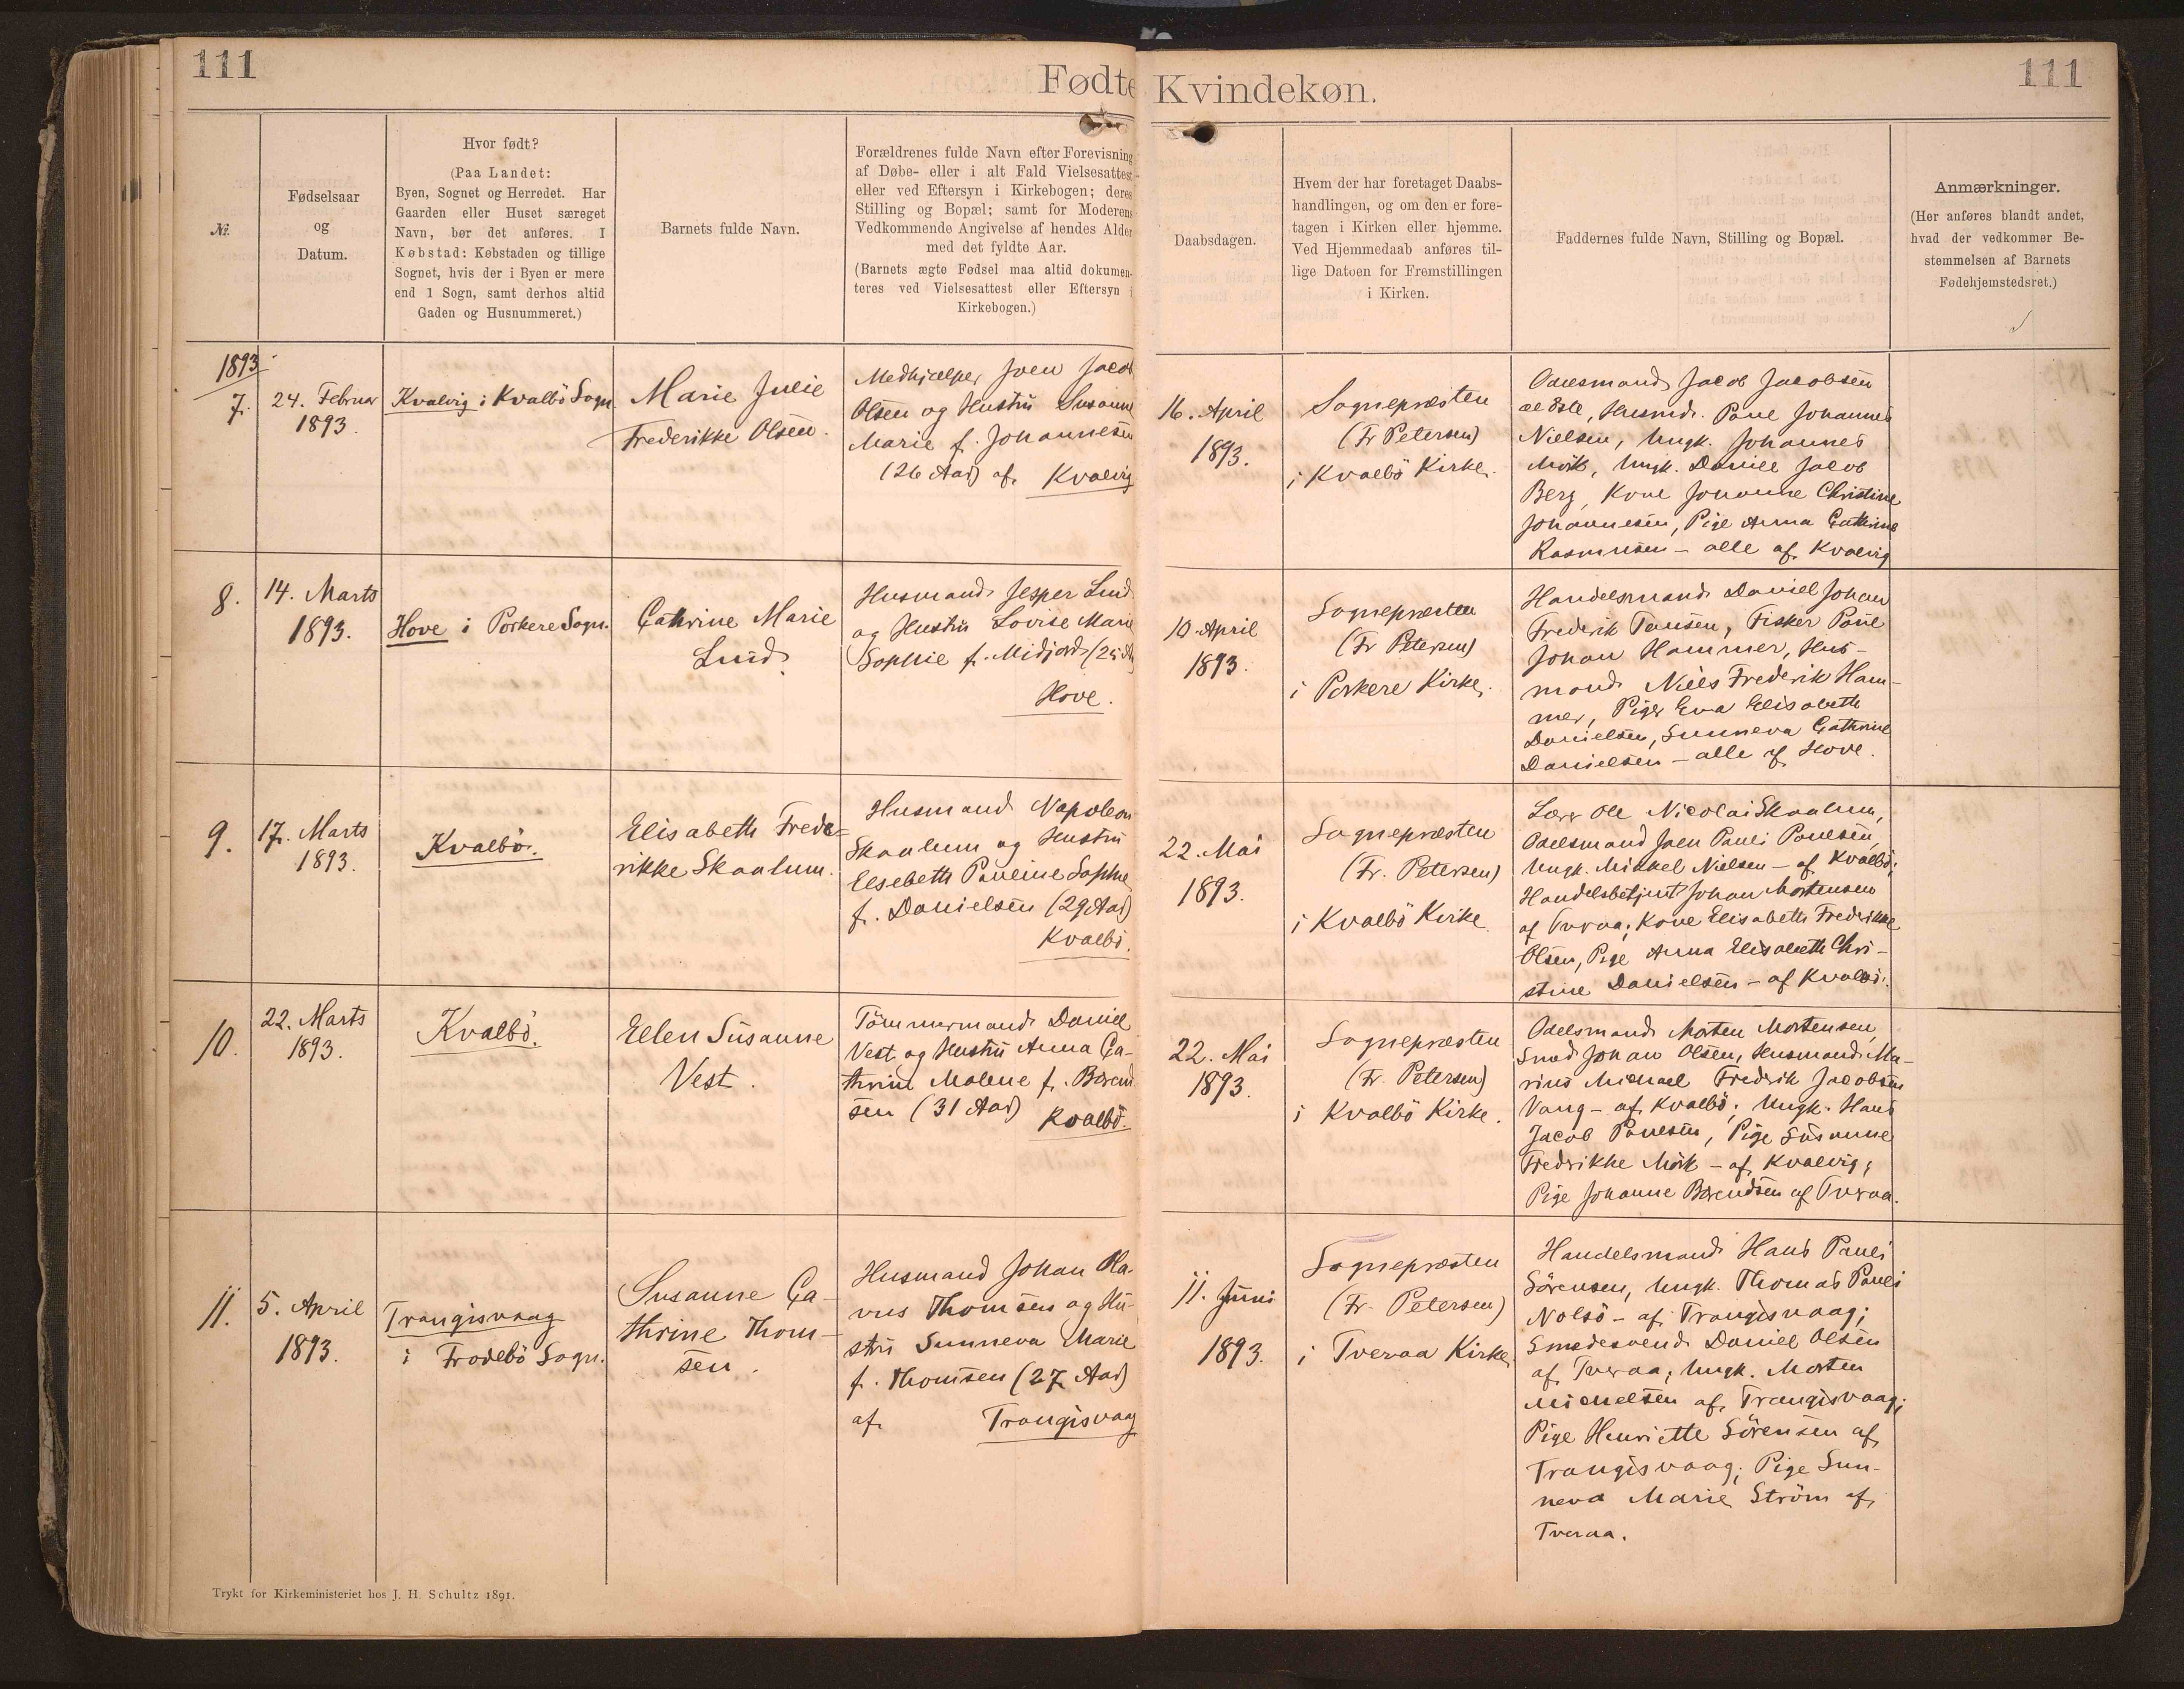 111
Fødte Kvindekøn.
111
Nr.
Fødselsaar
og
Datum.
Hvor født?
(Paa Landet:
Byen, Sognet og Herredet. Har
Gaarden eller Huset særeget
Navn, bør det anføres. I
Købstad: Købstaden og tillige
Sognet, hvis der i Byen er mere
end 1 Sogn, samt derhos altid
Gaden og Husnummeret.)
Barnets fulde Navn.
Forældrenes fulde Navn efter Forevisning
af Døbe- eller i alt Fald Vielsesattest
eller ved Eftersyn i Kirkebogen; deres
Stilling og Bopæl; samt for Moderens
Vedkommende Angivelse af hendes Alder
med det fyldte Aar.
(Barnets ægte Fødsel maa altid dokumen-
teres ved Vielsesattest eller Eftersyn i
Kirkebogen.)
Daabsdagen.
Hvem der har foretaget Daabs-
handlingen, og om den er fore-
tagen i Kirken eller hjemme.
Ved Hjemmedaab anføres til-
lige Datoen for Fremstillingen
i Kirken.
Faddernes fulde Navn, Stilling og Bopæl.
Anmærkninger.
(Her anføres blandt andet,
hvad der vedkommer Be-
stemmelsen af Barnets
Fødehjemstedsret.)
1893
7.
24. Februar
1893.
Kvalvig i Kvalbö Sogn.
Marie Julie
Frederikke Olsen.
Medhjælper Joen Jacob
Olsen og Hustru Susanne
Marie f. Johannesen
(26 Aar) af Kvalvig
16. April
1893.
Sognepræsten
(Fr Petersen)
i Kvalbö Kirke.
Odelsmand Jacob Jacobsen
ældste, Husmd. Poul Johannes
Nielsen, Ungk. Johannes
Mörk, Ungk. Daniel Jacob
Berg, Kone Johanne Christine
Johannesen, Pige Anna Cathrine
Rasmusen - alle af Kvalvig
8.
14. Marts
1893.
Hove i Porkere Sogn.
Cathrine Marie
Lund.
Husmand Jesper Lund
og Hustru Lovise Marie
Sophie f. Midjord (25 A
Hove.
10. April
1893.
Sognepræsten
(Fr Petersen)
i Porkere Kirke.
Handelsmand Daniel Johan
Frederik Tausen, Fisker Poul
Johan Hammer, Hus-
mand Niels Frederik Ham-
mer, Piger Eva Elisabeth
Danielsen, Sunneva Cathrine
Danielsen - alle af Hove.
9.
17. Marts
1893.
Kvalbö.
Elisabeth Frede-
rikke Skaalum.
Husmand Napoleon
Skaalum og Hustru
Elsebeth Pauline Sophie
f. Danielsen (29 Aar)
Kvalbö.
22. Mai
1893.
Sognepræsten
(Fr. Petersen)
i Kvalbö Kirke.
Lærer Ole Nicolai Skaalum,
Odelsmand Joen Pauli Poulsen,
Ungk. Mikkel Nielsen - af Kvalbö;
Handelsbetjent Johan Mortensen
af Tveraa; Kone Elisabeth Frederikke
Olsen, Pige Anna Elisabeth Chri-
stine Danielsen - af Kvalbö.
10.
22. Marts
1893.
Kvalbö.
Ellen Susanne
Vest.
Tömmermand Daniel
Vest og Hustru Anna Ca-
thrine Malene f. Berend
sen (31 Aar)
Kvalbö.
22. Mai
1893.
Sognepræsten
(Fr. Petersen)
i Kvalbö Kirke.
Odelsmand Morten Mortensen,
Smed Johan Olsen, Husmand Ma-
rius Michael Fredrik Jacobsen
Vang - af Kvalbö; Ungk. Hans
Jacob Poulsen, Pige Susanne
Fredrikke Mörk - af Kvalvig;
Pige Johanne Berendsen af Tveraa.
11.
5. April
1893.
Trangisvaag
i Frodebö Sogn.
Susanne Ca-
thrine Thom-
sen.
Husmand Johan Ola-
vus Thomsen og Hu-
stru Sunneva Marie
f. Thomsen (27 Aar)
af Trangisvaag
11. Juni
1893.
Sognepræsten
(Fr. Petersen)
i Tveraa Kirke.
Handelsmand Hans Pauli
Sörensen, Ungk. Thomas Pauli
Nolsö - af Trangisvaag;
Smedesvend Daniel Olsen
af Tveraa; Ungk. Morten
Michelsen af Trangisvaag;
Pige Henriette Sörensen af
Trangisvaag; Pige Sun-
neva Marie Ström af
Tveraa.
Trykt for Kirkeministeriet hos J. H. Schultz 1891.